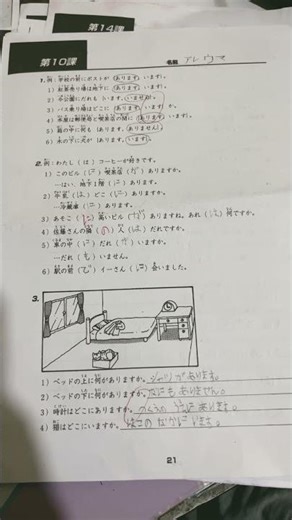 第14課
第10課
名前 アレ ウマ
1. 例：学校の前にポストが（あります, います）。
1）お茶売り場は地下に（あります, います）。
2）今公園にだれも（います, いません）。
3）バス乗り場はどこに（あります, います）か。
4）本屋は郵便局と喫茶店の間に（あります, います）。
5）箱の中に何も（あります, ありません）。
6）木の下に犬が（あります, います）。
2. 例：わたし（は）コーヒーが好きです。
1）このビル（に）喫茶店（が）ありますか。
…はい、地下1階（に）あります。
2）牛乳（は）どこ（に）ありますか。
…冷蔵庫（に）あります。
3）あそこ（に）高いビル（が）ありますね。あれ（は）何ですか。
4）佐藤さんの隣（の）人（は）だれですか。
5）車の中（に）だれ（が）いますか。
…だれ（も）いません。
6）駅の前（で）イーさん（に）会いました。
3.
1）ベッドの上に何がありますか。シャツがあります。
2）ベッドの下に何がありますか。なにもありません。
3）時計はどこにありますか。
4）猫はどこにいますか。はこのなかにいます。
21